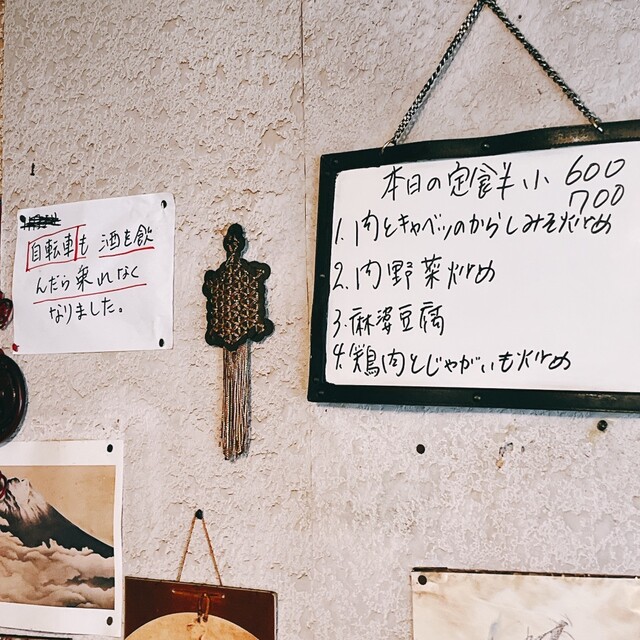 自転車も 酒を飲
んだら乗れなく
なりました。
本日の定食半小 600
700
1. 肉とキャベツのからしみそ炒め
2. 肉野菜炒め
3. 麻婆豆腐
4. 鶏肉とじゃがいも炒め